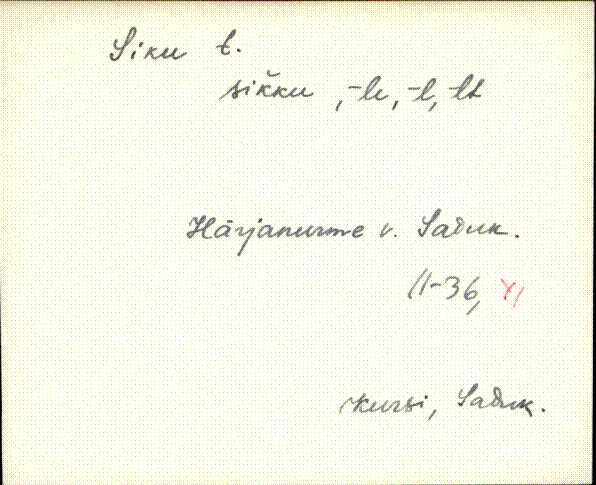 Siku t.
sik̆ku, -le, -l, -lt
Härjanurme v. Saduk.
11-36, XI
Kursi, Saduk.